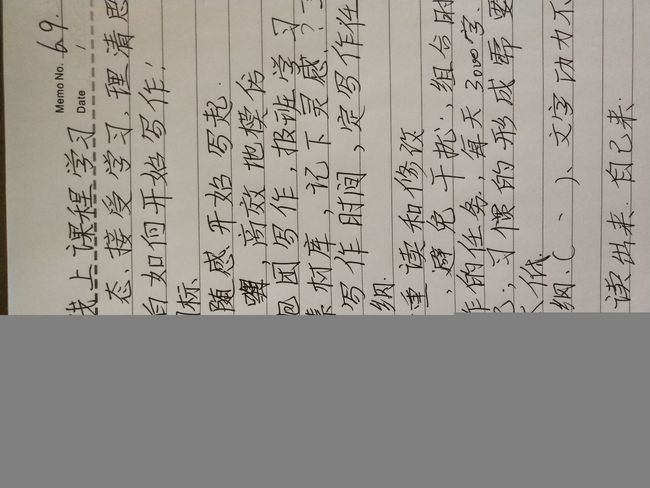 Memo No. 69.
Date
上课程学习
态、接受学习、理清思
如何开始写作!
标
随感开始写起.
高效地模仿
团写作,报班学习
材库,记下灵感?
写作时间,定写作任
纲.
重读和修改
避免干扰,组合时
作的任务,每天3000字.
习惯的形成需要
低
纲、(、)、文字功力不
读出来.自己来.